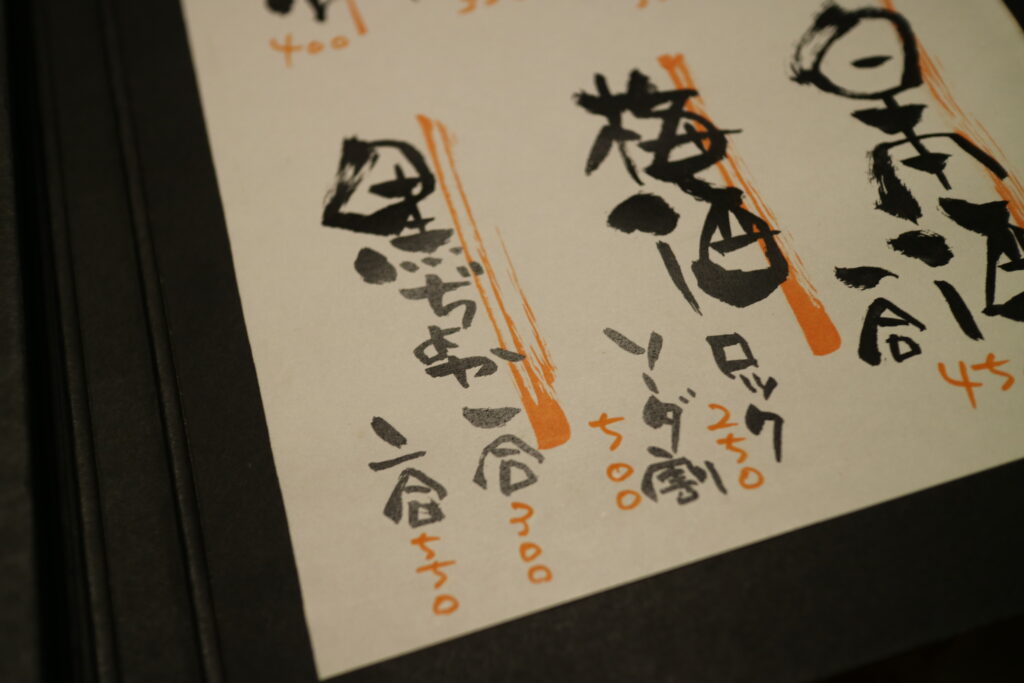 日本酒
一合
45
梅酒
ロック
250
ソーダ割
500
黒ぢょか
一合
300
二合
550
400